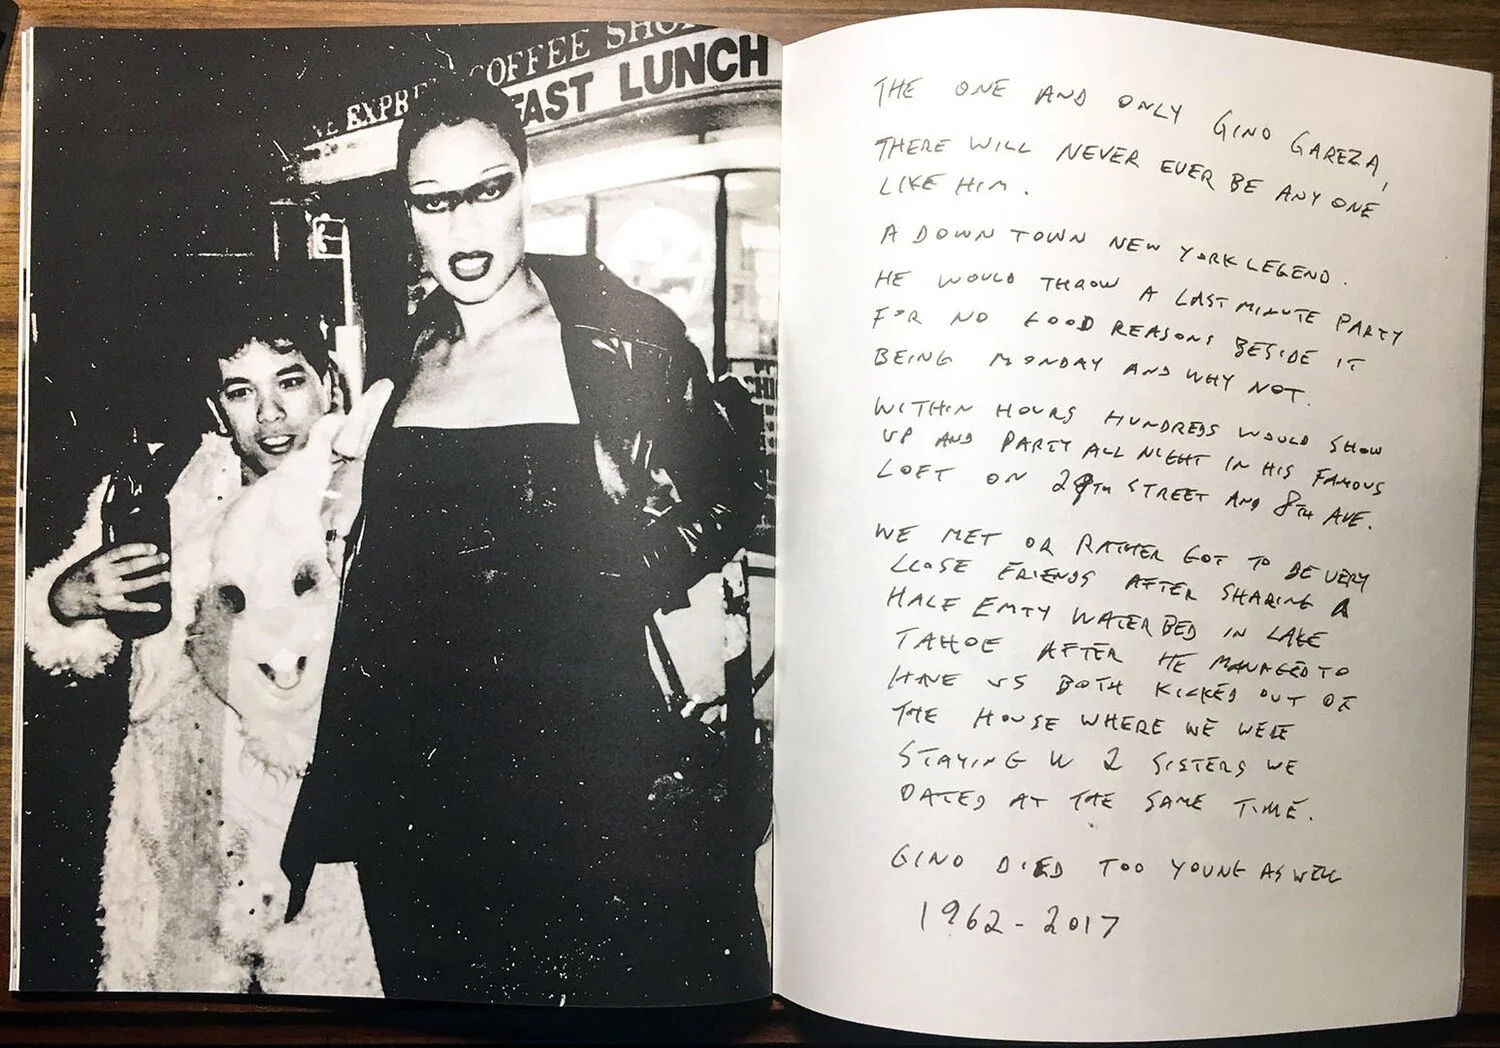 COFFEE SHO
EXPR
FAST LUNCH
THE ONE AND ONLY GINO GAREZA,
THERE WILL NEVER EVER BE ANY ONE
LIKE HIM.
A DOWN TOWN NEW YORK LEGEND.
HE WOULD THROW A LAST MINUTE PARTY
FOR NO GOOD REASONS BESIDE IT
BEING MONDAY AND WHY NOT.
WITHIN HOURS HUNDREDS WOULD SHOW
UP AND PARTY ALL NIGHT IN HIS FAMOUS
LOFT ON STREET AND 8TH AVE.
WE MET OR RATHER GOT TO BE VERY
CLOSE FRIENDS AFTER SHARING A
HALF EMTY WATER BED IN LAKE
TAHOE AFTER HE MANAGED TO
HAVE US BOTH KICKED OUT OF
THE HOUSE WHERE WE WERE
STAYING W 2 SISTERS WE
DATED AT THE SAME TIME.
GINO DIED TOO YOUNG AS WELL
1962-2017